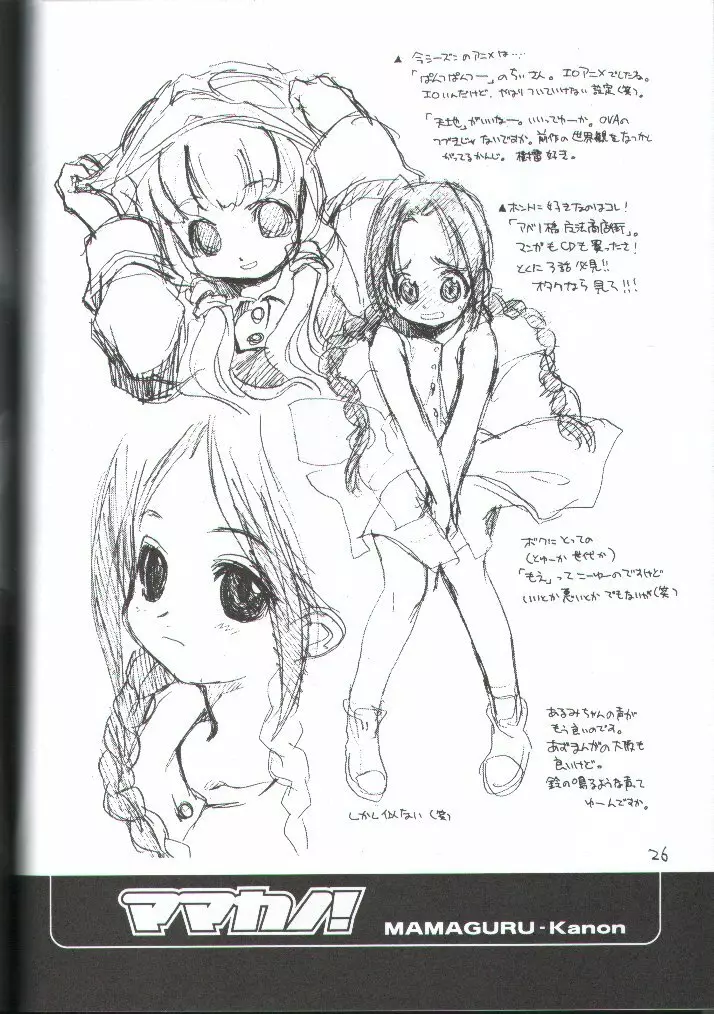 ▲ 今シーズンのアニメは‥‥
「ぱんつぱんつー」のちぃさん。エロアニメでしたね。
エロいんだけど、やはりついていけない設定(笑)。
「天地」がいいなー。いいってゆーか。OVAの
つづきじゃないですか。前作の世界観をなつかし
がってるかんじ。樹雷好き。
▲ホントに好きなのはコレ!
「アベノ橋魔法商店街」。
マンガもCDも買ったさ!
とくに3話必見!!
オタクなら見て!!!
ボクにとっての
(とゆーか世代か)
「もえ」ってこーゆーのですけど
いいとか悪いとかでもないが(笑)
あるみちゃんの声が
もう良いのです。
あずまんがの大阪も
良いけど。
鈴の鳴るような声って
ゆーんですか。
しかし似ない(笑)
26
ママカノ!
MAMAGURU-Kanon